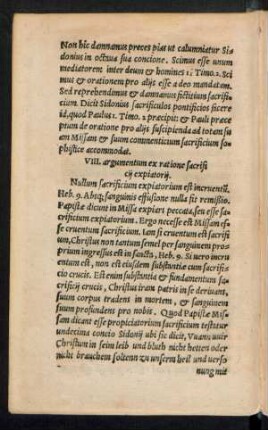 Non hîc damnamus preces pias ut calumniatur Si-
donius in octaua sua concione. Scimus esse unum
mediatorem inter deum & homines 1. Timo. 2. Sci
mus & orationem pro alijs esse a deo mandatam.
Sed reprehendimus & damnamus fictitium sacrifi
cium. Dicit Sidonius sacrificulos pontificios facere
id, quod Paulus 1. Timo. 2 praecipit: & Pauli praece
ptum de oratione pro alijs suscipienda ad totam su
am Missam & suum commenticium sacrificium so
phisticè accommodat.
VIII. argumentum ex ratione sacrifi
cij expiatorij.
Nullum sacrificium expiatorium est incruentũ.
Heb. 9. Absq; sanguinis effusione nulla fit remissio.
Papistæ dicunt in Missa expiari peccata, seu esse sa-
crificium expiatorium. Ergo necesse est Missam es-
se cruentum sacrificium. Ion si cruentum est sacrifi
um, Christus non tantum semel per sanguinem pro-
prium ingressus est in sancta, Heb. 9. Si uero incru
entum est, non est eiusdem substantiæ cum sacrifi-
cio crucis. Est enim substantia & fundamentum sa-
crificij crucis, Christus iram patris in se deriuans,
suum corpus tradens in mortem, & sanguinem
suum profundens pro nobis. Quod Papistæ Mis-
sam dicant esse propiciatorium sacrificium testatur
undecima concio Sidonij ubi sic dicit, Wann wir
Christum in seim leib und bluth nicht hetten oder
nicht brauchem soltenn zu unserm heil und verso
nung mit